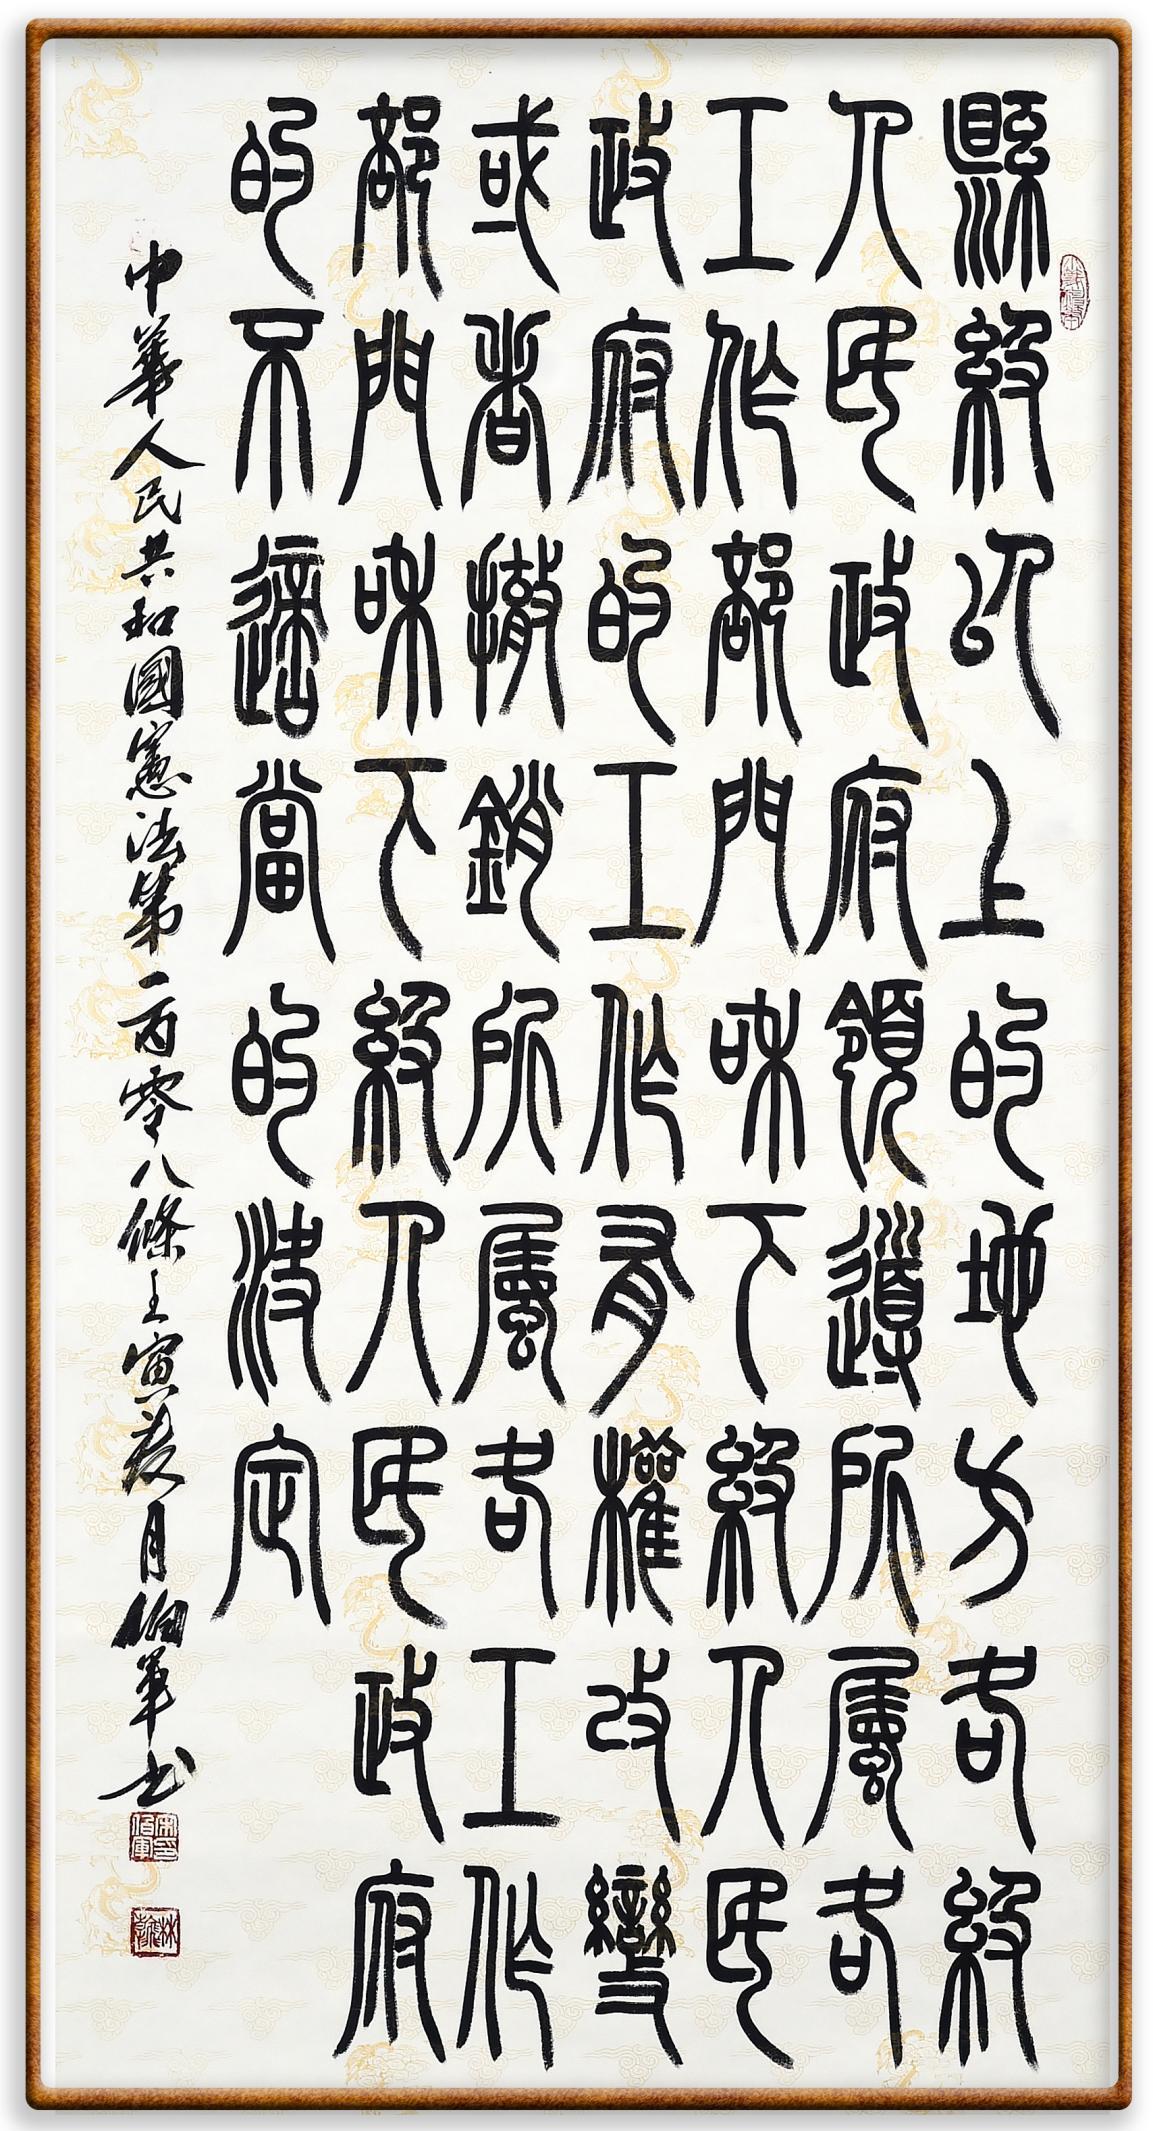 縣級以上的地方各級
人民政府領導所屬各
工作部門和下級人民
政府的工作有權改變
或者撤銷所屬各工作
部門和下級人民政府
的不適當的決定
中華人民共和國憲法第一百零八條壬寅夏月佰軍书